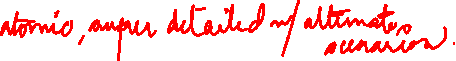 atomic, super detailed w/ alternate
scenarios.